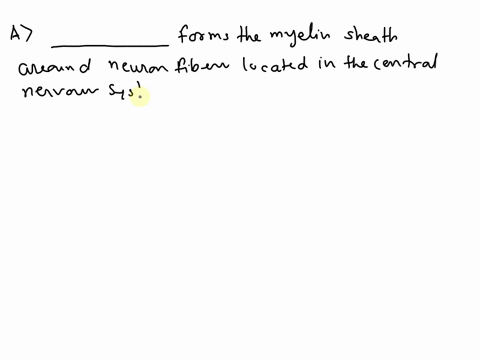 A> __________ forms the myelin sheath
around neuron fibers located in the central
nervous sys